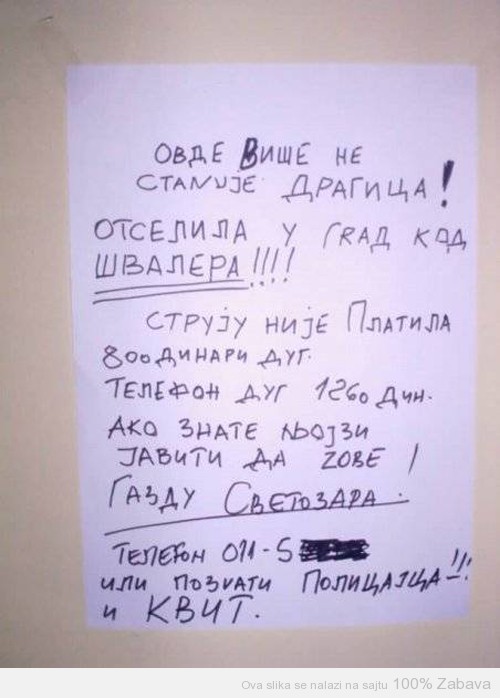 ОВДЕ ВИШЕ НЕ
СТАNУЈЕ ДРАГИЦА!
ОТСЕЛИЛА У ГRАД КОД
ШВАЛЕРА!!!!
СТРУЈУ НИЈЕ ПЛАТИЛА
800 ДИНАРИ ДУГ.
ТЕЛЕФОН ДУГ 1260 ДИН.
АКО ЗНАТЕ ЊОЈЗИ
ЈАВИТИ ДА ZОВЕ !
ГАЗДУ СВЕТОЗАРА.
ТЕЛЕФОН 011-5
ИЛИ ПОЗVАТИ ПОЛИЦАЈЦА!!!
И КВИТ.
Ova slika se nalazi na sajtu 100% Zabava